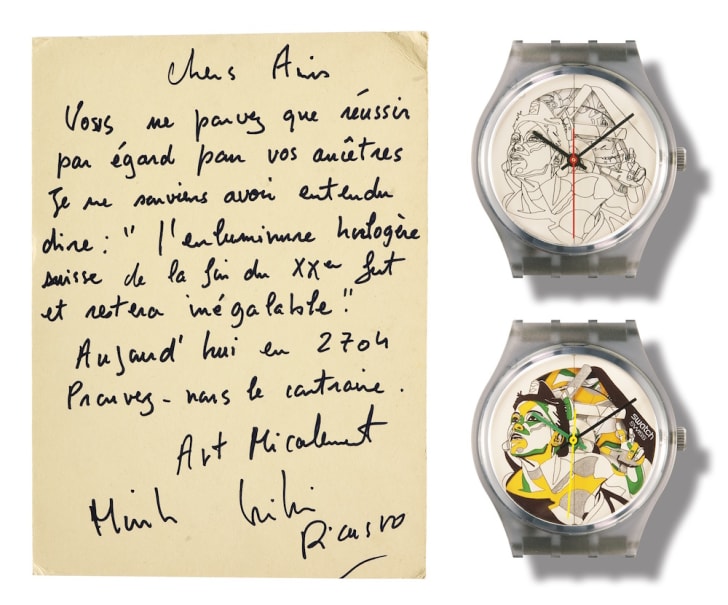 Chers Amis
Vous ne pouvez que réussir
par égard pour vos ancêtres
Je me souviens avoir entendu
dire : " l'enluminure horlogère
suisse de la fin du XXem fut
et restera inégalable ".
Aujourd'hui en 2704
Prouvez-nous le contraire.
Art Micalement
swatch
SWISS